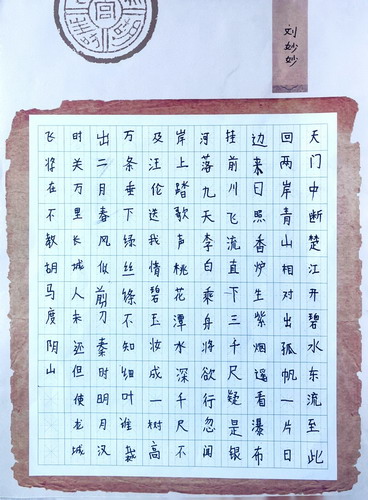 刘妙妙
天门中断楚江开碧水东流至此
回两岸青山相对出孤帆一片日
边来日照香炉生紫烟遥看瀑布
挂前川飞流直下三千尺疑是银
河落九天李白乘舟将欲行忽闻
岸上踏歌声桃花潭水深千尺不
及汪伦送我情碧玉妆成一树高
万条垂下绿丝绦不知细叶谁裁
出二月春风似剪刀秦时明月汉
时关万里长城人未还但使龙城
飞将在不教胡马度阴山